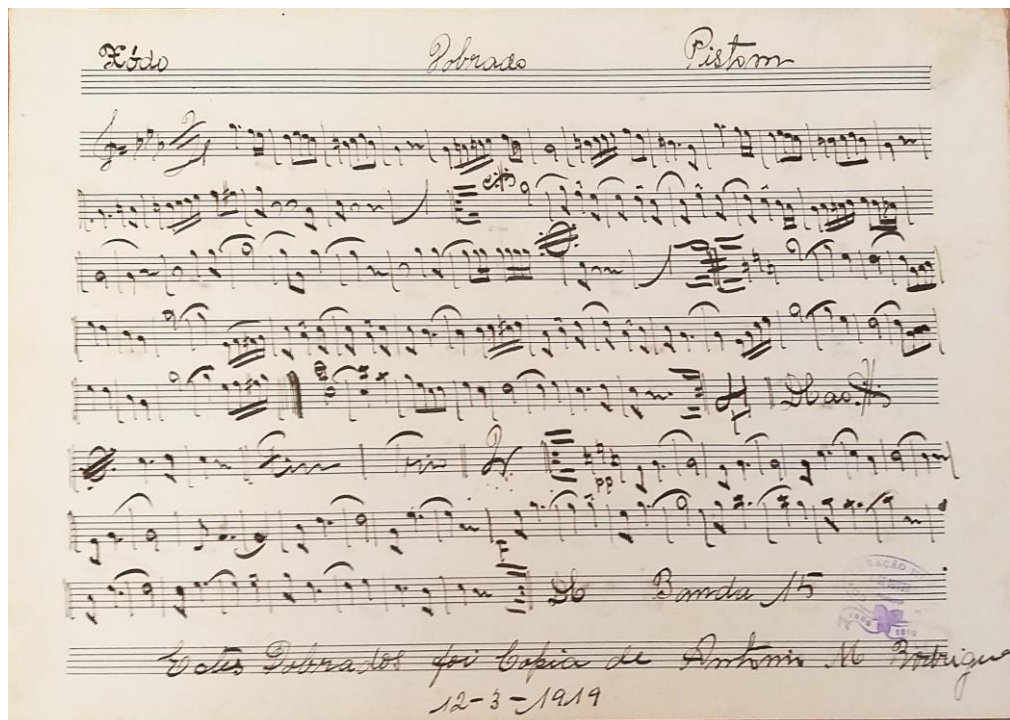 Xódo Dobrado Pistom
Fim Trio
pp
F
DC Banda 15
Estes Dobrados foi Copia de Antonio M Rodrigue
12-3-1919